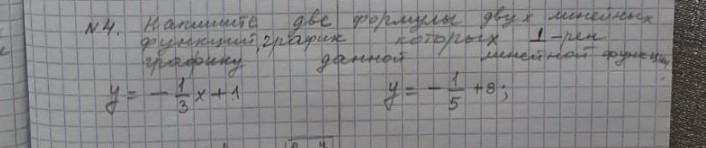 №4. Напишите две формулы двух линейных
функций, график которых 1-рен
графику данной линейной функции
y = -1/3 x + 1 y = -1/5 + 8;